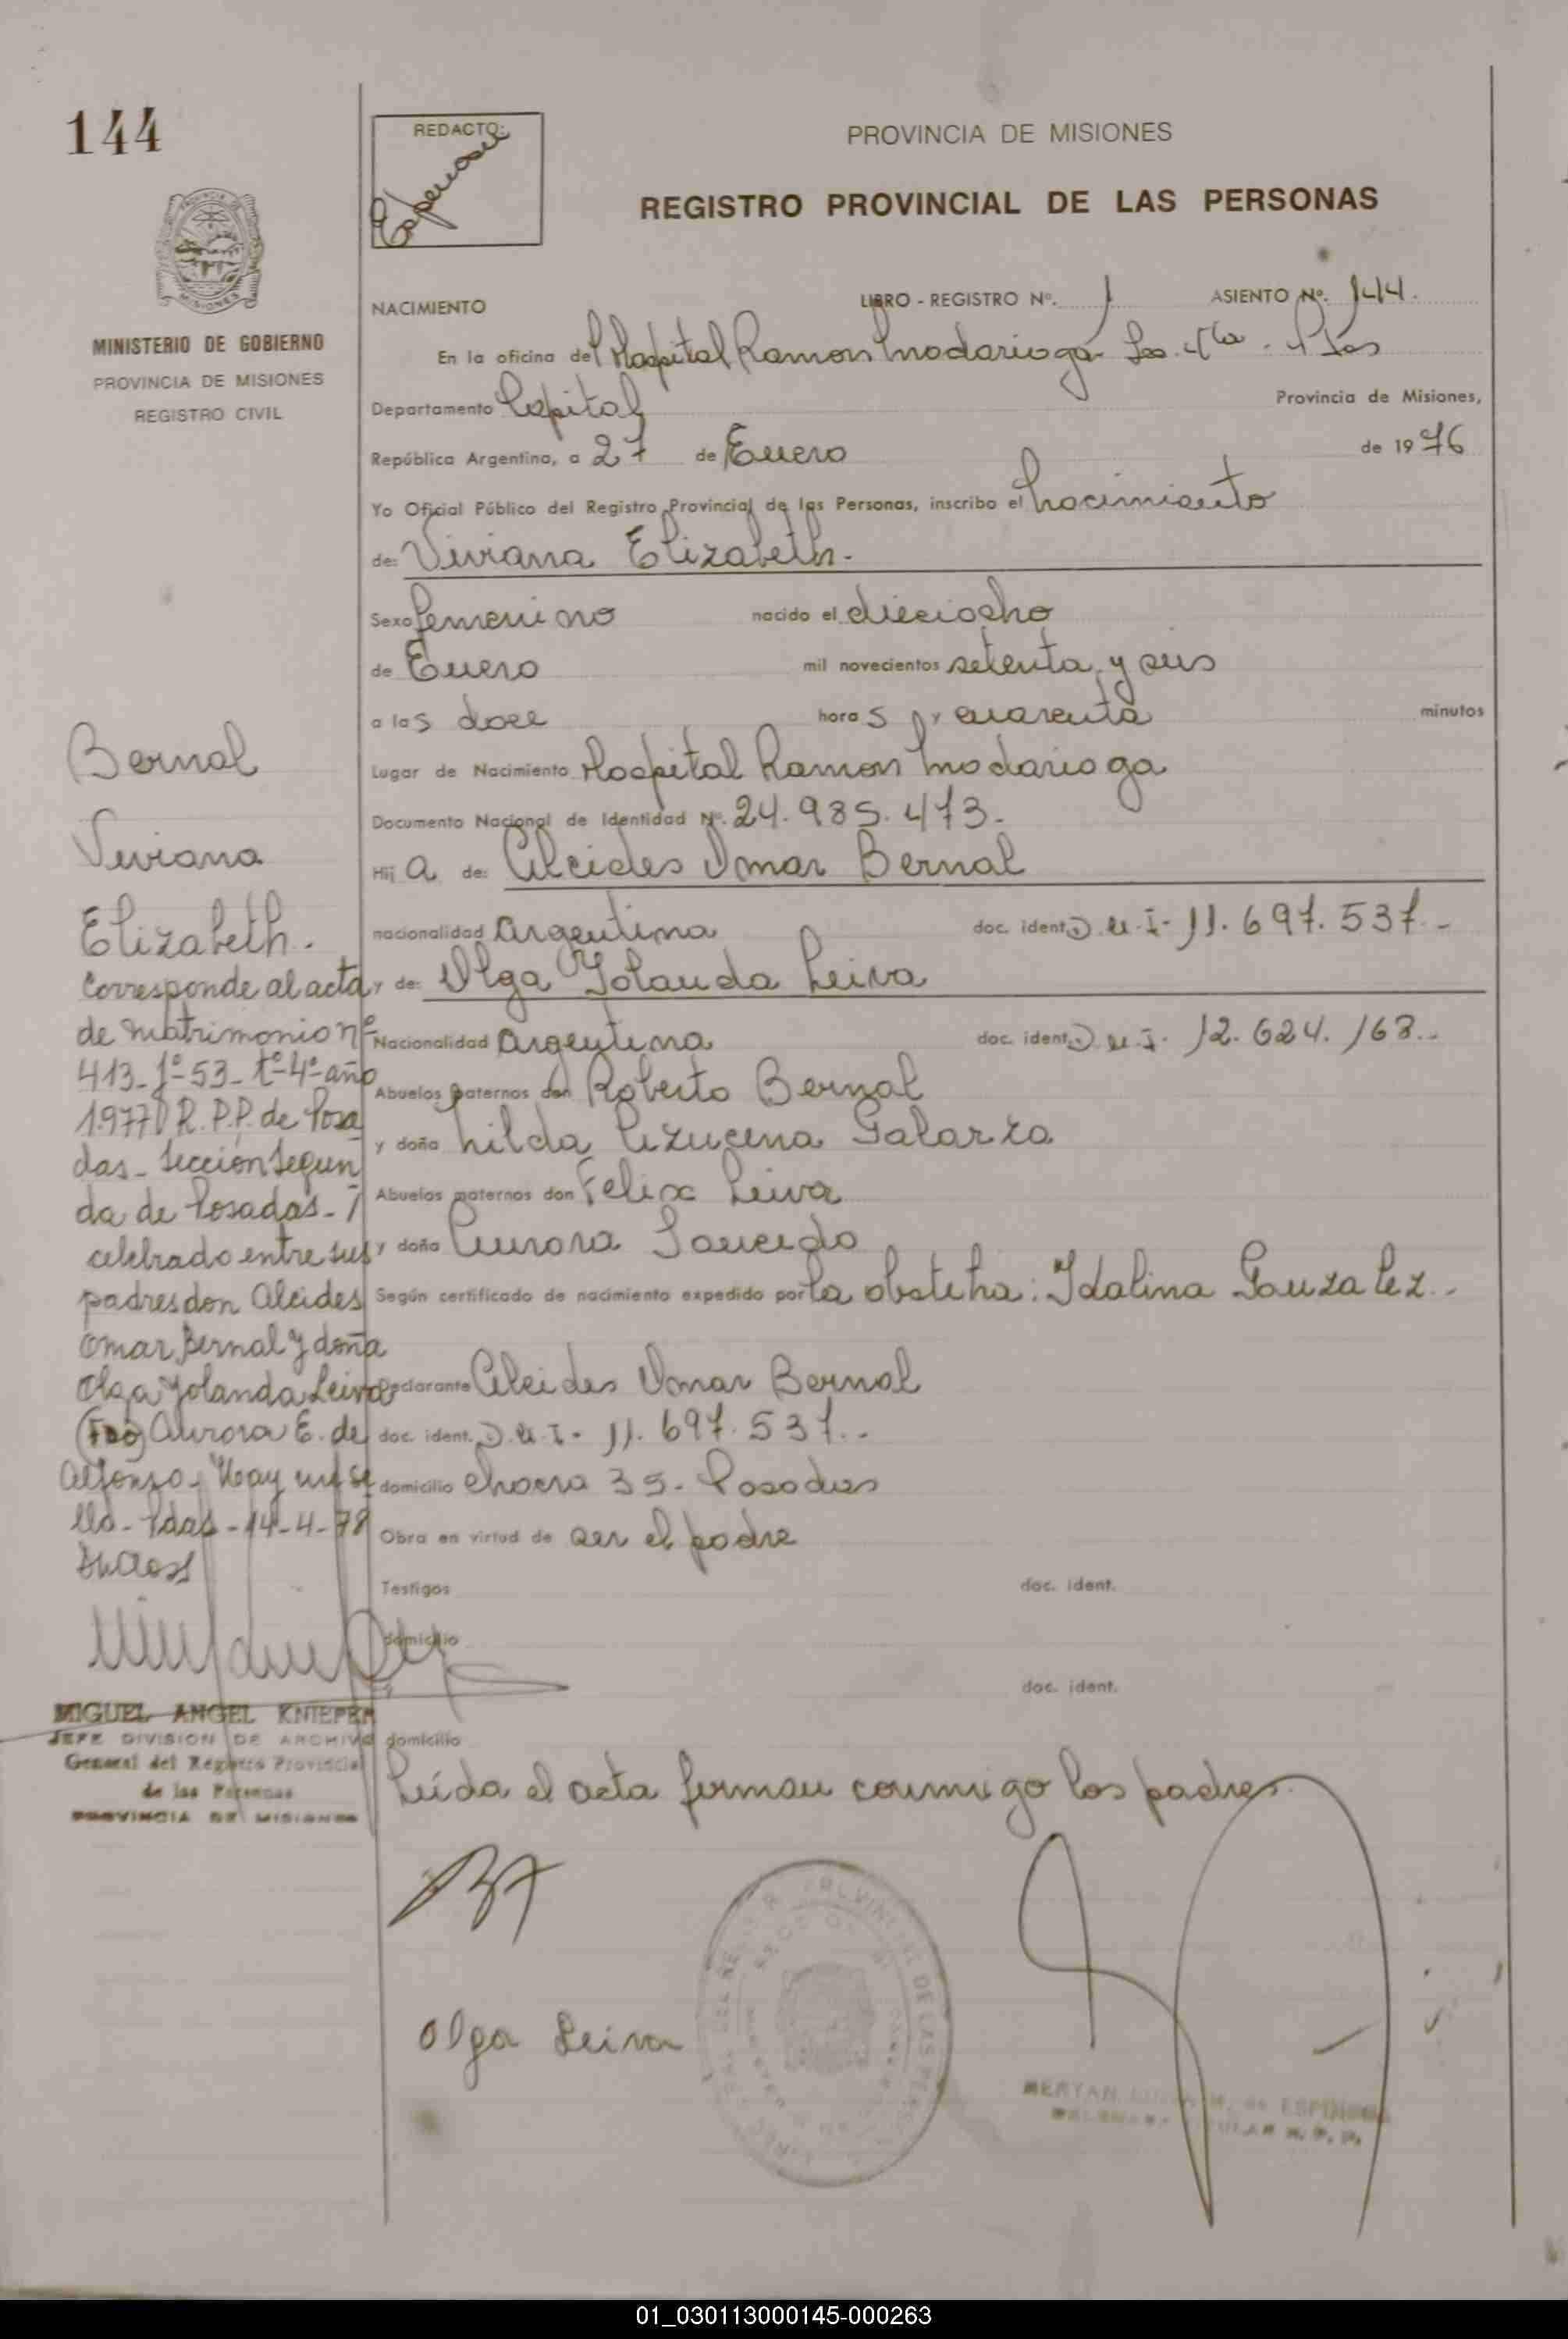 144
REDACTO:
PROVINCIA DE MISIONES
REGISTRO PROVINCIAL DE LAS PERSONAS
MINISTERIO DE GOBIERNO
PROVINCIA DE MISIONES
REGISTRO CIVIL
NACIMIENTO LIBRO - REGISTRO Nº. 1 ASIENTO Nº. 144.
En la oficina del Hospital Ramon Madariaga
Departamento Capital Provincia de Misiones,
República Argentina, a 27 de Enero de 1976
Yo Oficial Público del Registro Provincial de las Personas, inscribo el nacimiento
de: Viviana Elizabeth.
Sexo femenino nacido el dieciocho
de Enero mil novecientos setenta y seis
a las doce horas y cuarenta minutos
Lugar de Nacimiento Hospital Ramon Madariaga
Documento Nacional de Identidad Nº. 24.985.473.
Hija de: Alcides Omar Bernal
nacionalidad Argentina doc. ident. D.N.I. 11.697.537.-
y de: Olga Yolanda Leiva
Nacionalidad Argentina doc. ident. D.N.I. 12.624.168..
Abuelos paternos don Roberto Bernal
y doña Nilda Azucena Galarza
Abuelos maternos don Felix Leiva
y doña Aurora Saucedo
Según certificado de nacimiento expedido por la obstetra: Idalina Gonzalez..
Declarante Alcides Omar Bernal
doc. ident. D.N.I. 11.697.537..
domicilio chacra 35. Posadas
Obra en virtud de ser el padre
Testigos doc. ident.
domicilio
doc. ident.
domicilio
Leída el acta firman conmigo los padres.
Olga Leiva
Bernal
Viviana
Elizabeth.
Corresponde al acta
de matrimonio nº
413-fº-53-tº-4º-año
1977 R.P.P. de Posa
das-Sección Segun
da de Posadas-
celebrado entre sus
padres don Alcides
Omar Bernal y doña
Olga Yolanda Leiva
(Fdo) Aurora E. de
Alfonso. Hay un se
llo-Pdas-14-4-78
MIGUEL ANGEL KNIEPER
JEFE DIVISION DE ARCHIVO
General del Registro Provincial
de las Personas
PROVINCIA DE MISIONES
01_030113000145-000263